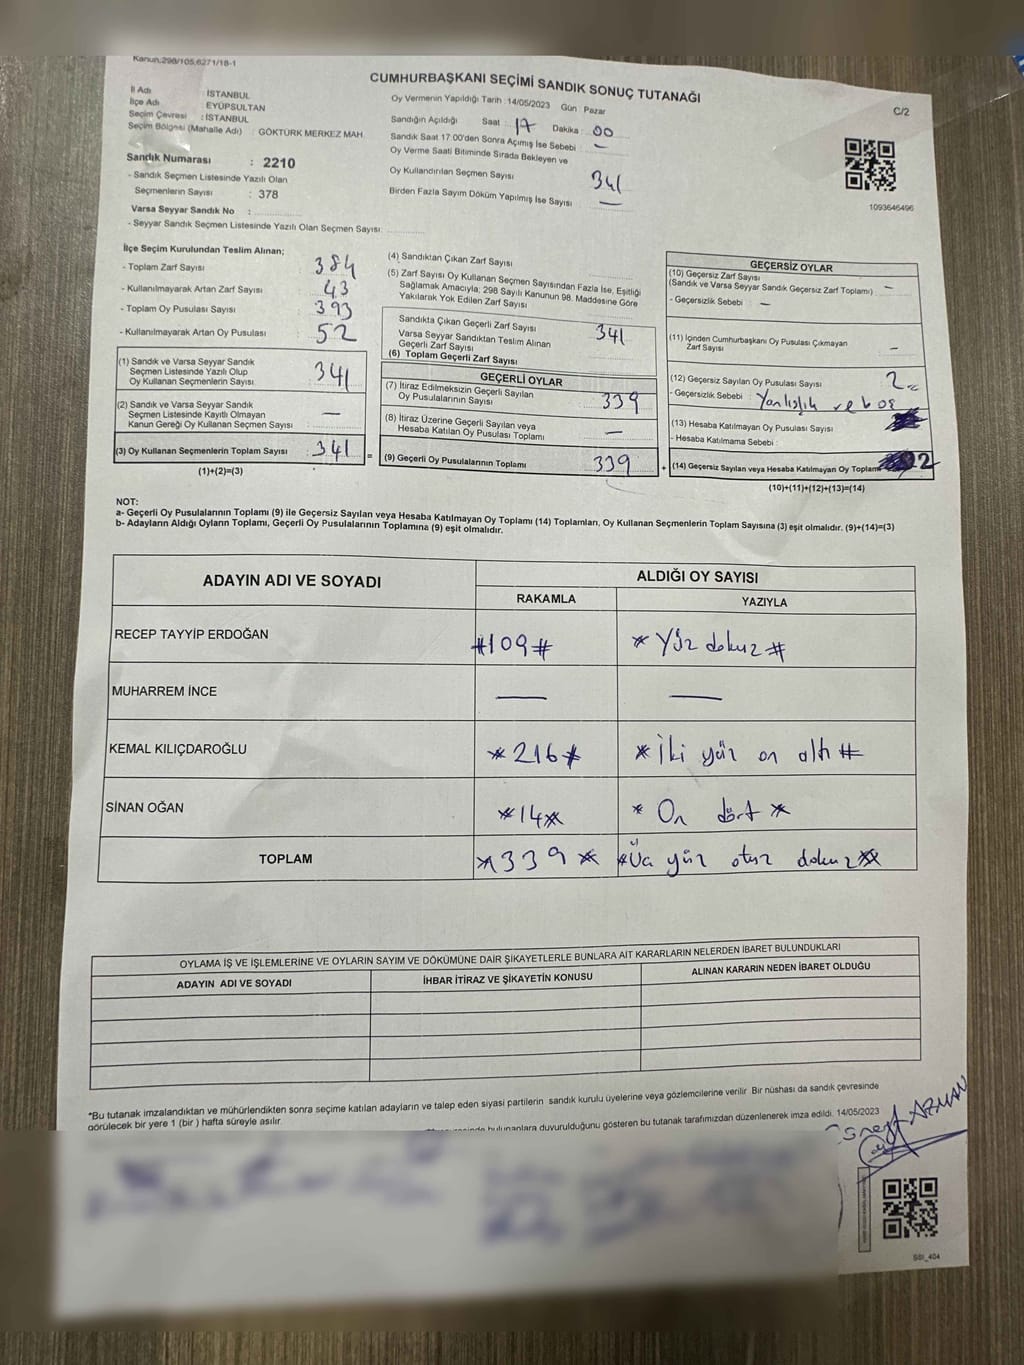 Kanun,298/105,6271/18-1
CUMHURBAŞKANI SEÇİMİ SANDIK SONUÇ TUTANAĞI
C/2
İl Adı İSTANBUL
İlçe Adı EYÜPSULTAN
Seçim Çevresi : İSTANBUL
Seçim Bölgesi (Mahalle Adı) : GÖKTÜRK MERKEZ MAH.
Sandık Numarası : 2210
- Sandık Seçmen Listesinde Yazılı Olan
Seçmenlerin Sayısı : 378
Varsa Seyyar Sandık No :
- Seyyar Sandık Seçmen Listesinde Yazılı Olan Seçmen Sayısı:
Oy Vermenin Yapıldığı Tarih :14/05/2023 Gün : Pazar
Sandığın Açıldığı Saat : 17 Dakika : 00
Sandık Saat 17:00'den Sonra Açımış İse Sebebi : —
Oy Verme Saati Bitiminde Sırada Bekleyen ve
Oy Kullandırılan Seçmen Sayısı : 341
Birden Fazla Sayım Döküm Yapılmış İse Sayısı : —
1093646496
İlçe Seçim Kurulundan Teslim Alınan;
- Toplam Zarf Sayısı : 384
- Kullanılmayarak Artan Zarf Sayısı : 43
- Toplam Oy Pusulası Sayısı : 393
- Kullanılmayarak Artan Oy Pusulası : 52
(1) Sandık ve Varsa Seyyar Sandık
Seçmen Listesinde Yazılı Olup
Oy Kullanan Seçmenlerin Sayısı : 341
(2) Sandık ve Varsa Seyyar Sandık
Seçmen Listesinde Kayıtlı Olmayan
Kanun Gereği Oy Kullanan Seçmen Sayısı : —
(3) Oy Kullanan Seçmenlerin Toplam Sayısı : 341 =
(1)+(2)=(3)
(4) Sandıktan Çıkan Zarf Sayısı
(5) Zarf Sayısı Oy Kullanan Seçmen Sayısından Fazla İse, Eşitliği
Sağlamak Amacıyla; 298 Sayılı Kanunun 98. Maddesine Göre
Yakılarak Yok Edilen Zarf Sayısı
Sandıkta Çıkan Geçerli Zarf Sayısı
Varsa Seyyar Sandıktan Teslim Alınan
Geçerli Zarf Sayısı
(6) Toplam Geçerli Zarf Sayısı
341
GEÇERLİ OYLAR
(7) İtiraz Edilmeksizin Geçerli Sayılan
Oy Pusulalarının Sayısı : 339
(8) İtiraz Üzerine Geçerli Sayılan veya
Hesaba Katılan Oy Pusulası Toplamı : —
(9) Geçerli Oy Pusulalarının Toplamı : 339 +
GEÇERSİZ OYLAR
(10) Geçersiz Zarf Sayısı
(Sandık ve Varsa Seyyar Sandık Geçersiz Zarf Toplamı) : —
- Geçersizlik Sebebi : —
(11) İçinden Cumhurbaşkanı Oy Pusulası Çıkmayan
Zarf Sayısı : —
(12) Geçersiz Sayılan Oy Pusulası Sayısı : 2
- Geçersizlik Sebebi : Yanlışlık ve boş
(13) Hesaba Katılmayan Oy Pusulası Sayısı
- Hesaba Katılmama Sebebi :
(14) Geçersiz Sayılan veya Hesaba Katılmayan Oy Toplamı 2
(10)+(11)+(12)+(13)=(14)
NOT:
a- Geçerli Oy Pusulalarının Toplamı (9) ile Geçersiz Sayılan veya Hesaba Katılmayan Oy Toplamı (14) Toplamları, Oy Kullanan Seçmenlerin Toplam Sayısına (3) eşit olmalıdır. (9)+(14)=(3)
b- Adayların Aldığı Oyların Toplamı, Geçerli Oy Pusulalarının Toplamına (9) eşit olmalıdır.
ADAYIN ADI VE SOYADI
ALDIĞI OY SAYISI
RAKAMLA YAZIYLA
RECEP TAYYİP ERDOĞAN #109# * Yüz dokuz #
MUHARREM İNCE — —
KEMAL KILIÇDAROĞLU *216* * İki yüz on altı #
SİNAN OĞAN *14* * On dört *
TOPLAM *339* #Üç yüz otuz dokuz *
OYLAMA İŞ VE İŞLEMLERİNE VE OYLARIN SAYIM VE DÖKÜMÜNE DAİR ŞİKAYETLERLE BUNLARA AİT KARARLARIN NELERDEN İBARET BULUNDUKLARI
ADAYIN ADI VE SOYADI İHBAR İTİRAZ VE ŞİKAYETİN KONUSU ALINAN KARARIN NEDEN İBARET OLDUĞU
*Bu tutanak imzalandıktan ve mühürlendikten sonra seçime katılan adayların ve talep eden siyasi partilerin sandık kurulu üyelerine veya gözlemcilerine verilir. Bir nüshası da sandık çevresinde
görülecek bir yere 1 (bir) hafta süreyle asılır.
bulunanlara duyurulduğunu gösteren bu tutanak tarafımızdan düzenlenerek imza edildi. 14/05/2023
SSI_404